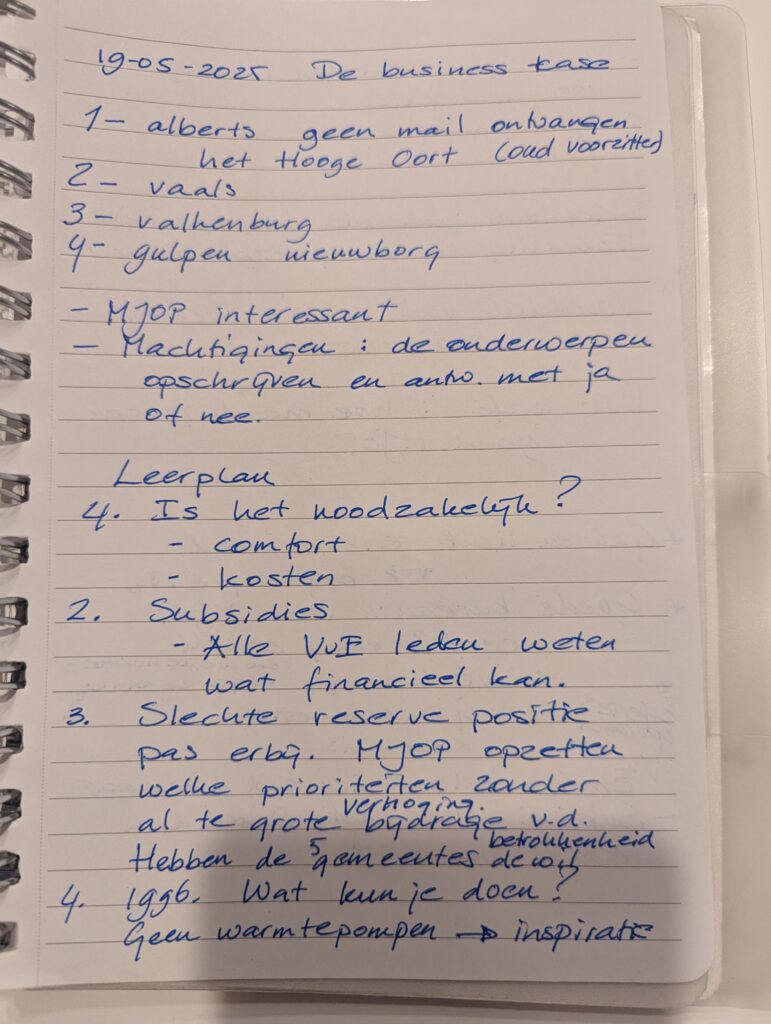 19-05-2025 De business kase
1- alberts geen mail ontvangen
het Hooge Oort (oud voorzitter)
2- vaals
3- valkenburg
4- gulpen nieuwborg
- MJOP interessant
- Machtigingen : de onderwerpen
opschrijven en antw. met ja
of nee.
Leerplan
4. Is het noodzakelijk?
- comfort
- kosten
2. Subsidies
- Alle VvE leden weten
wat financieel kan.
3. Slechte reserve positie
pas erbij. MJOP opzetten
welke prioriteiten zonder
verhoging.
al te grote bijdrage v.d.
Hebben de 5 gemeentes de betrokkenheid
4. 1996. Wat kun je doen?
Geen warmtepompen → inspiratie